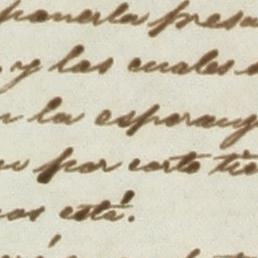 ponerla presa
y las cuales
la esperanz
por corto tie
nos está.